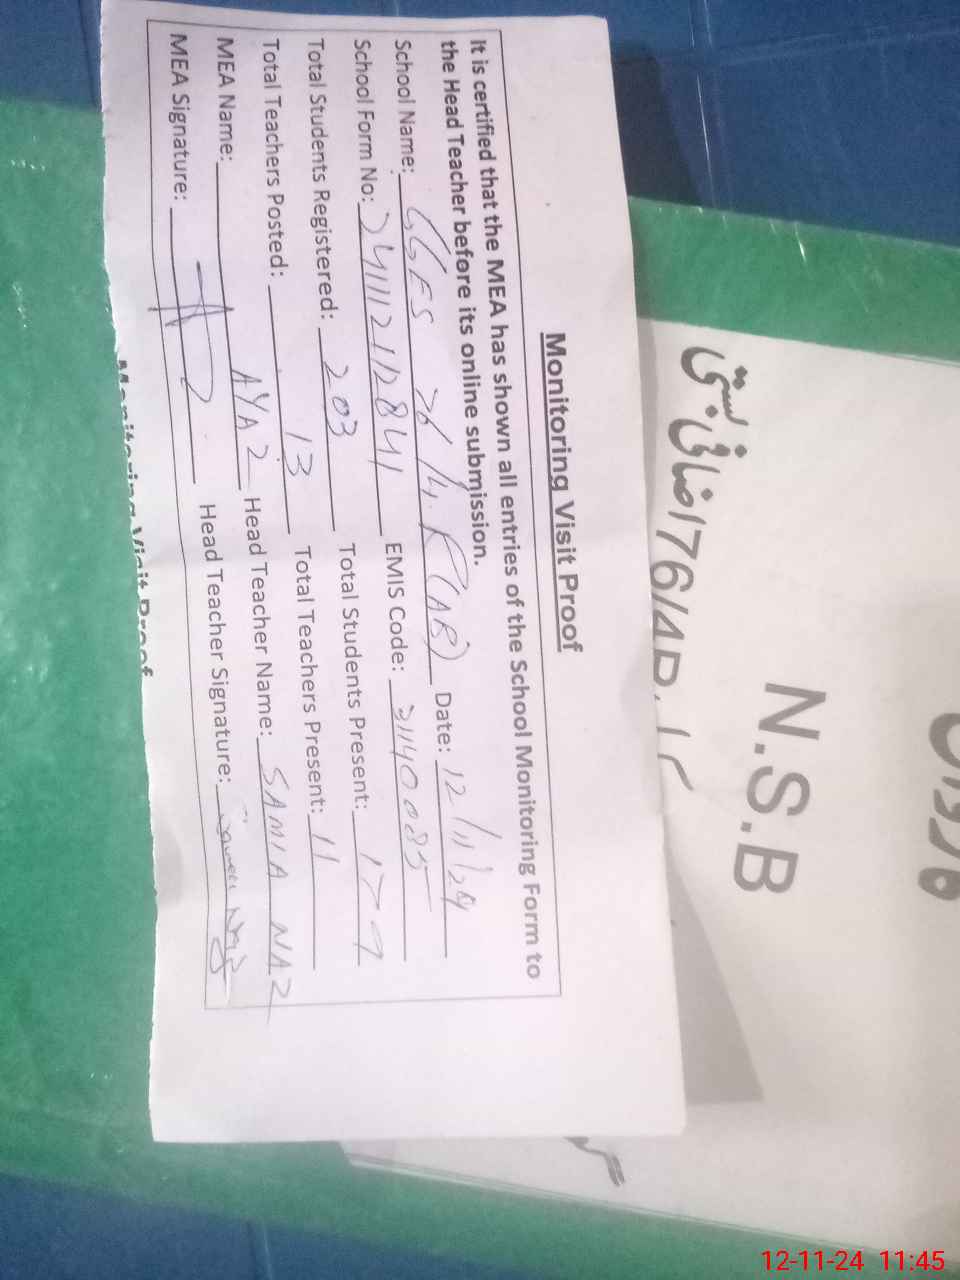 Monitoring Visit Proof
It is certified that the MEA has shown all entries of the School Monitoring Form to
the Head Teacher before its online submission.
School Name: GGES 76/4.R (AB) Date: 12/11/24
School Form No: 241112112841 EMIS Code: 31140085
Total Students Registered: 203 Total Students Present: 179
Total Teachers Posted: 13 Total Teachers Present: 11
MEA Name: AYAZ Head Teacher Name: SAMIA NAZ
MEA Signature: Head Teacher Signature:
Monitoring Visit Proof
N.S.B
اضافی بستی 176/4R
12-11-24 11:45